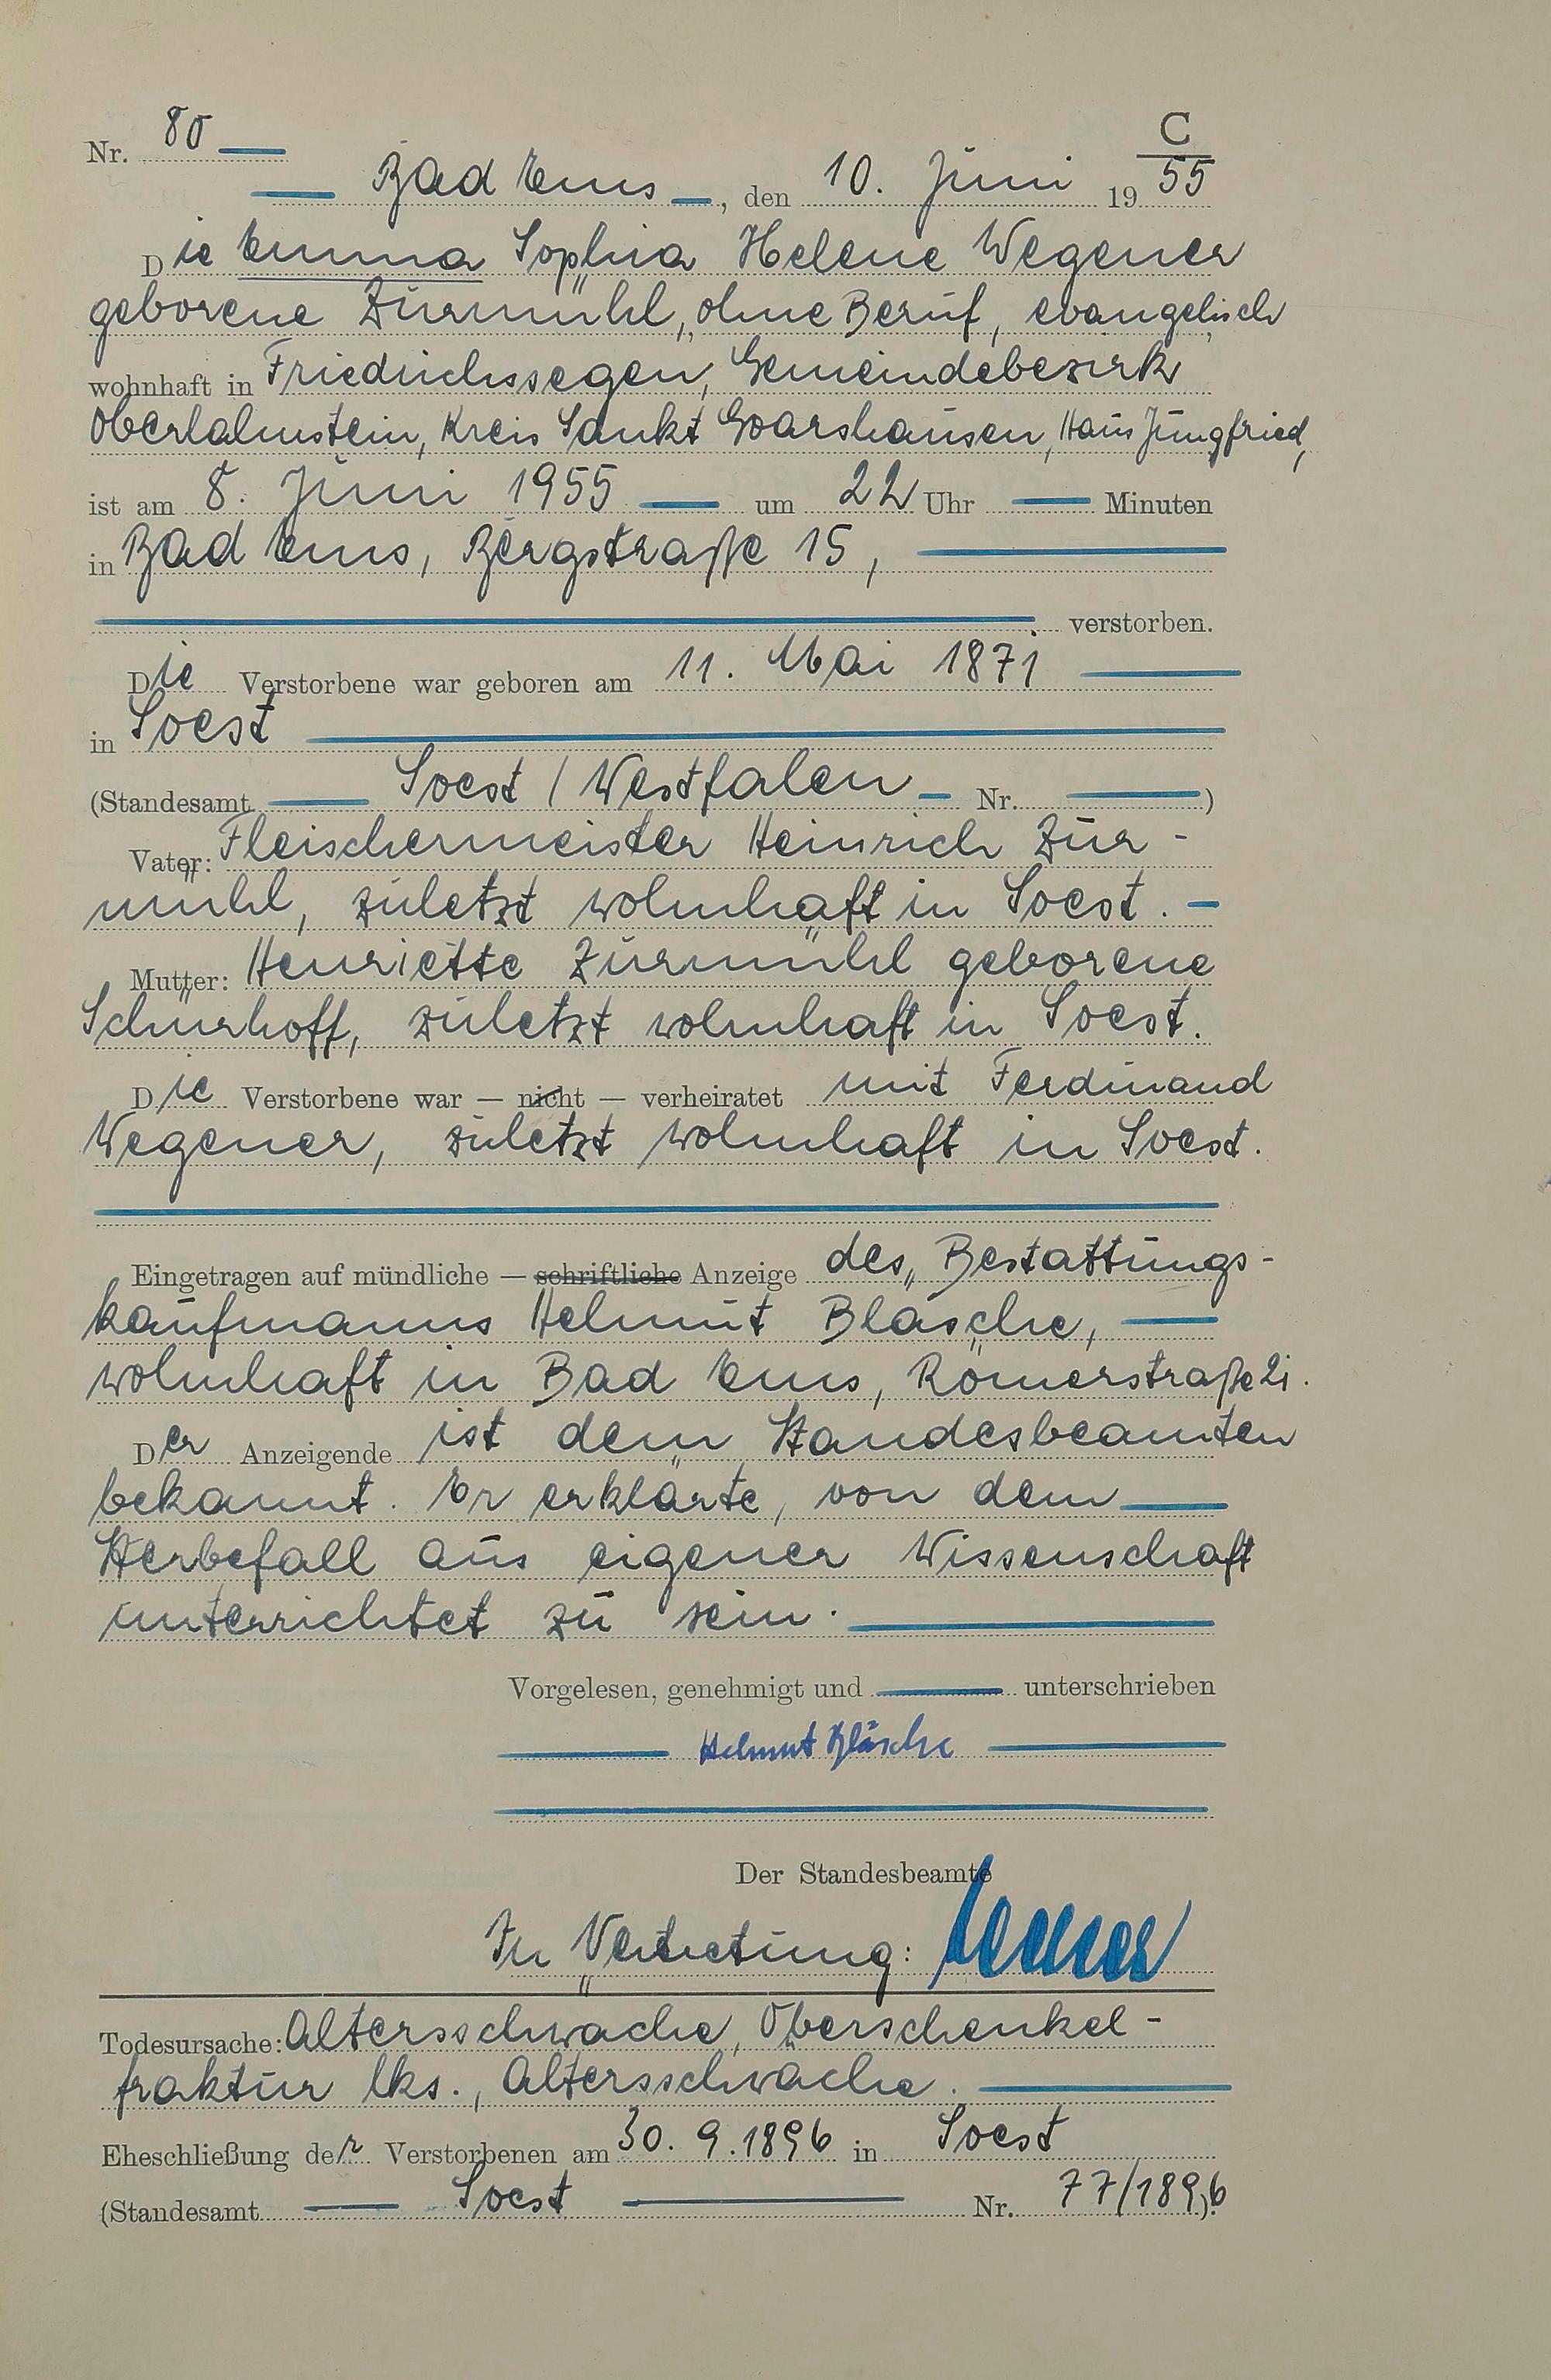 C
Nr. 80
Bad Ems, den 10. Juni 19 55
Die Emma Sophia Helene Wegener
geborene Zurmühl, ohne Beruf, evangelisch
wohnhaft in Friedrichssegen, Gemeindebezirk
Oberlahnstein, Kreis Sankt Goarshausen, Haus Jungfried,
ist am 8. Juni 1955 um 22 Uhr Minuten
in Bad Ems, Bergstraße 15,
verstorben.
Die Verstorbene war geboren am 11. Mai 1871
in Soest
(Standesamt Soest / Westfalen Nr. )
Vater: Fleischermeister Heinrich Zur-
mühl, zuletzt wohnhaft in Soest.
Mutter: Henriette Zurmühl geborene
Schürhoff, zuletzt wohnhaft in Soest.
Die Verstorbene war — nicht — verheiratet mit Ferdinand
Wegener, zuletzt wohnhaft in Soest.
Eingetragen auf mündliche — schriftliche Anzeige des Bestattungs-
kaufmanns Helmut Bläsche,
wohnhaft in Bad Ems, Römerstraße 21.
Der Anzeigende ist dem Standesbeamten
bekannt. Er erklärte, von dem
Sterbefall aus eigener Wissenschaft
unterrichtet zu sein.
Vorgelesen, genehmigt und unterschrieben
Helmut Bläsche
Der Standesbeamte
In Vertretung:
Todesursache: Altersschwäche, Oberschenkel-
fraktur lks., Altersschwäche.
Eheschließung der Verstorbenen am 30. 9. 1896 in Soest
(Standesamt Soest Nr. 77/1896).